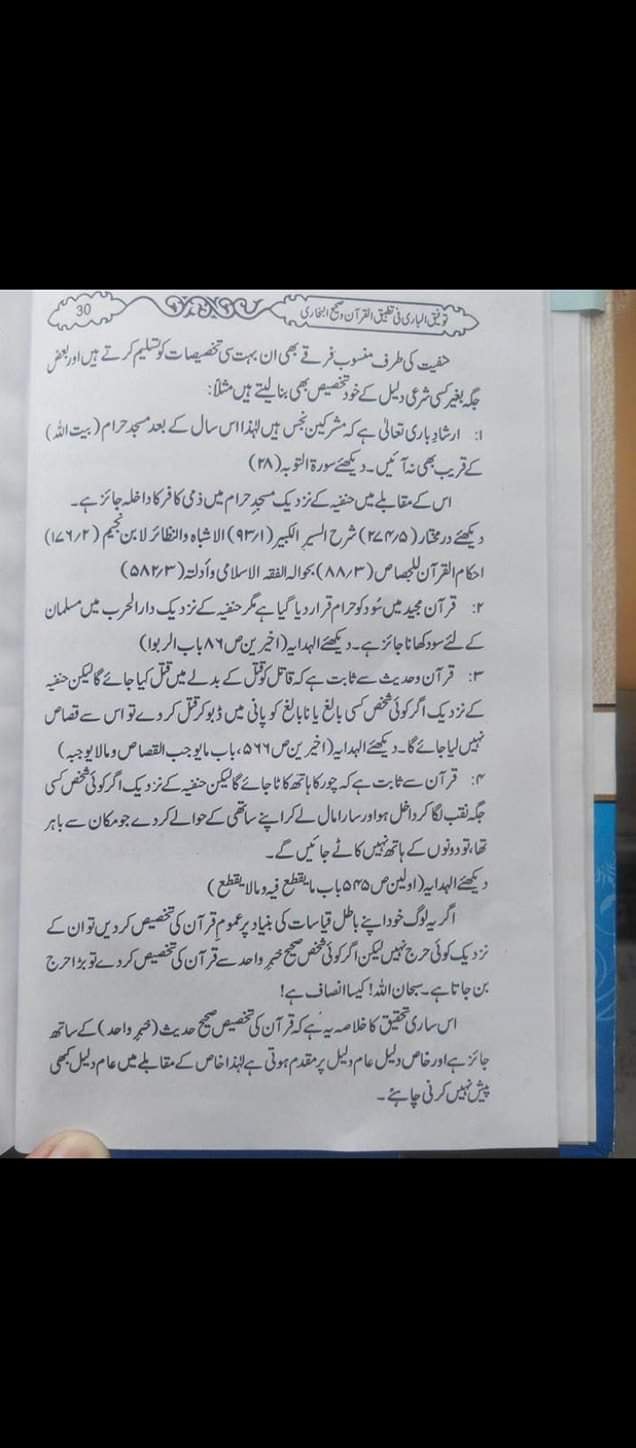 30
توفیق الباری فی تطبیق القرآن و صحیح البخاری
حنفیت کی طرف منسوب فرقے بھی ان بہت سی تخصیصات کو تسلیم کرتے ہیں اور بعض
جگہ بغیر کسی شرعی دلیل کے خود تخصیص بھی بنا لیتے ہیں مثلاً:
۱: ارشادِ باری تعالیٰ ہے کہ مشرکین نجس ہیں لہٰذا اس سال کے بعد مسجد حرام (بیت اللہ)
کے قریب بھی نہ آئیں۔ دیکھئے سورۃ التوبہ (۲۸)
اس کے مقابلے میں حنفیہ کے نزدیک مسجدِ حرام میں ذمی کافر کا داخلہ جائز ہے۔
دیکھئے درمختار (۲۷۴/۵) شرح السیر الکبیر (۹۳/۱) الاشباہ والنظائر لابن نجیم (۱۷۶/۲)
احکام القرآن للجصاص (۸۸/۳) بحوالہ الفقہ الاسلامی وأدلتہ (۵۸۲/۳)
۲: قرآن مجید میں سُود کو حرام قرار دیا گیا ہے مگر حنفیہ کے نزدیک دارالحرب میں مسلمان
کے لئے سود کھانا جائز ہے۔ دیکھئے الہدایہ (اخیرین ص ۸۶ باب الربوا)
۳: قرآن و حدیث سے ثابت ہے کہ قاتل کو قتل کے بدلے میں قتل کیا جائے گا لیکن حنفیہ
کے نزدیک اگر کوئی شخص کسی بالغ یا نابالغ کو پانی میں ڈبو کر قتل کر دے تو اس سے قصاص
نہیں لیا جائے گا۔ دیکھئے الہدایہ (اخیرین ص ۵۶۶، باب مایوجب القصاص و مالا یوجبہ)
۴: قرآن سے ثابت ہے کہ چور کا ہاتھ کاٹا جائے گا لیکن حنفیہ کے نزدیک اگر کوئی شخص کسی
جگہ نقب لگا کر داخل ہو اور سارا مال لے کر اپنے ساتھی کے حوالے کر دے جو مکان سے باہر
تھا، تو دونوں کے ہاتھ نہیں کاٹے جائیں گے۔
دیکھئے الہدایہ (اولین ص ۵۴۵ باب ما یقطع فیہ و مالا یقطع)
اگر یہ لوگ خود اپنے باطل قیاسات کی بنیاد پر عمومِ قرآن کی تخصیص کر دیں تو ان کے
نزدیک کوئی حرج نہیں لیکن اگر کوئی شخص صحیح خبرِ واحد سے قرآن کی تخصیص کر دے تو بڑا حرج
بن جاتا ہے۔ سبحان اللہ! کیسا انصاف ہے!
اس ساری تحقیق کا خلاصہ یہ ہے کہ قرآن کی تخصیص صحیح حدیث (خبرِ واحد) کے ساتھ
جائز ہے اور خاص دلیل عام دلیل پر مقدم ہوتی ہے لہٰذا خاص کے مقابلے میں عام دلیل کبھی
پیش نہیں کرنی چاہئے۔